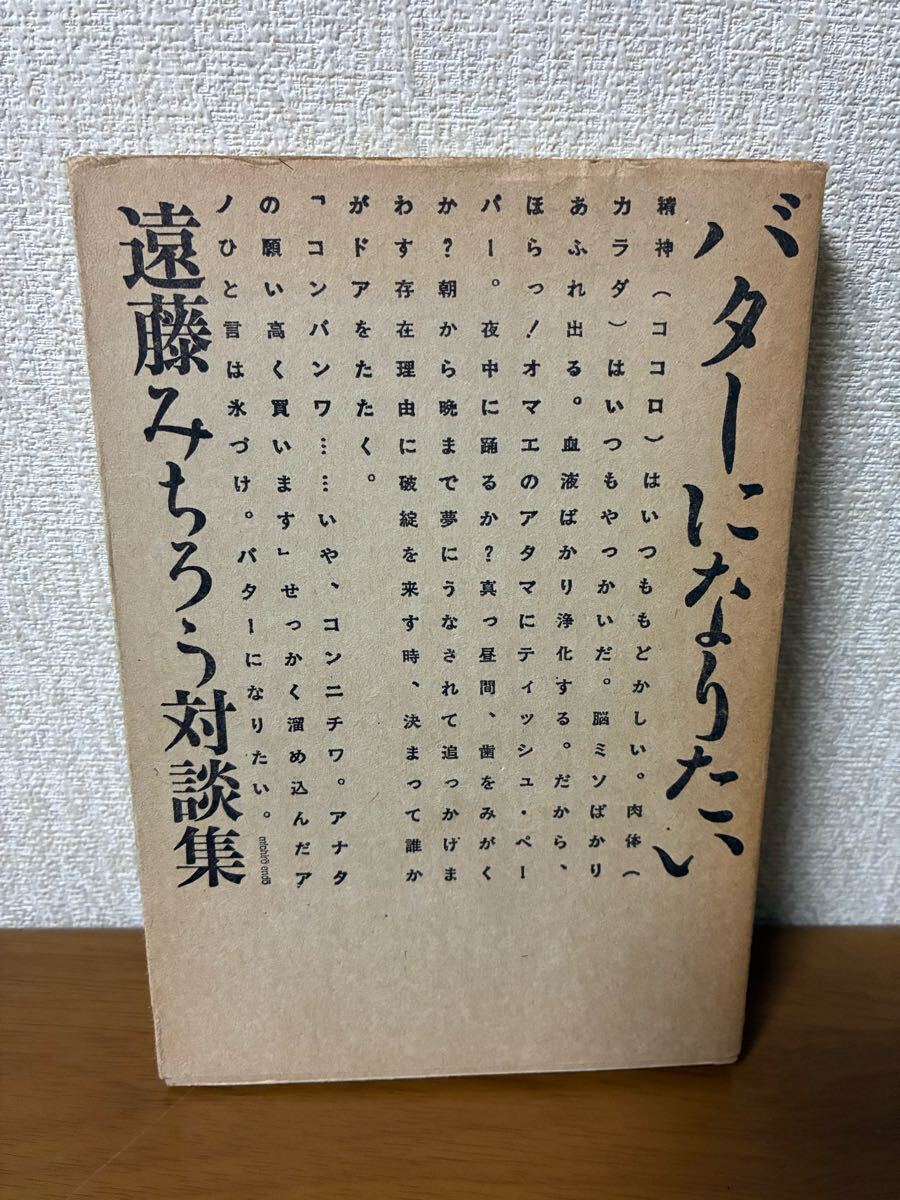 バターになりたい
精神（ココロ）はいつももどかしい。肉体（
カラダ）はいつもやつかいだ。脳ミソばかり
あふれ出る。血液ばかり浄化する。だから、
ほらっ！オマエのアタマにティッシュ・ペー
パー。夜中に踊るか？真っ昼間、歯をみがく
か？朝から晩まで夢にうなされて追っかけま
わす存在理由に破綻を来す時、決まって誰か
がドアをたたく。
「コンバンワ……いや、コンニチワ。アナタ
の願い高く買います」せっかく溜め込んだア
ノひと言は氷づけ。バターになりたい。
michirō endō
遠藤みちろう対談集